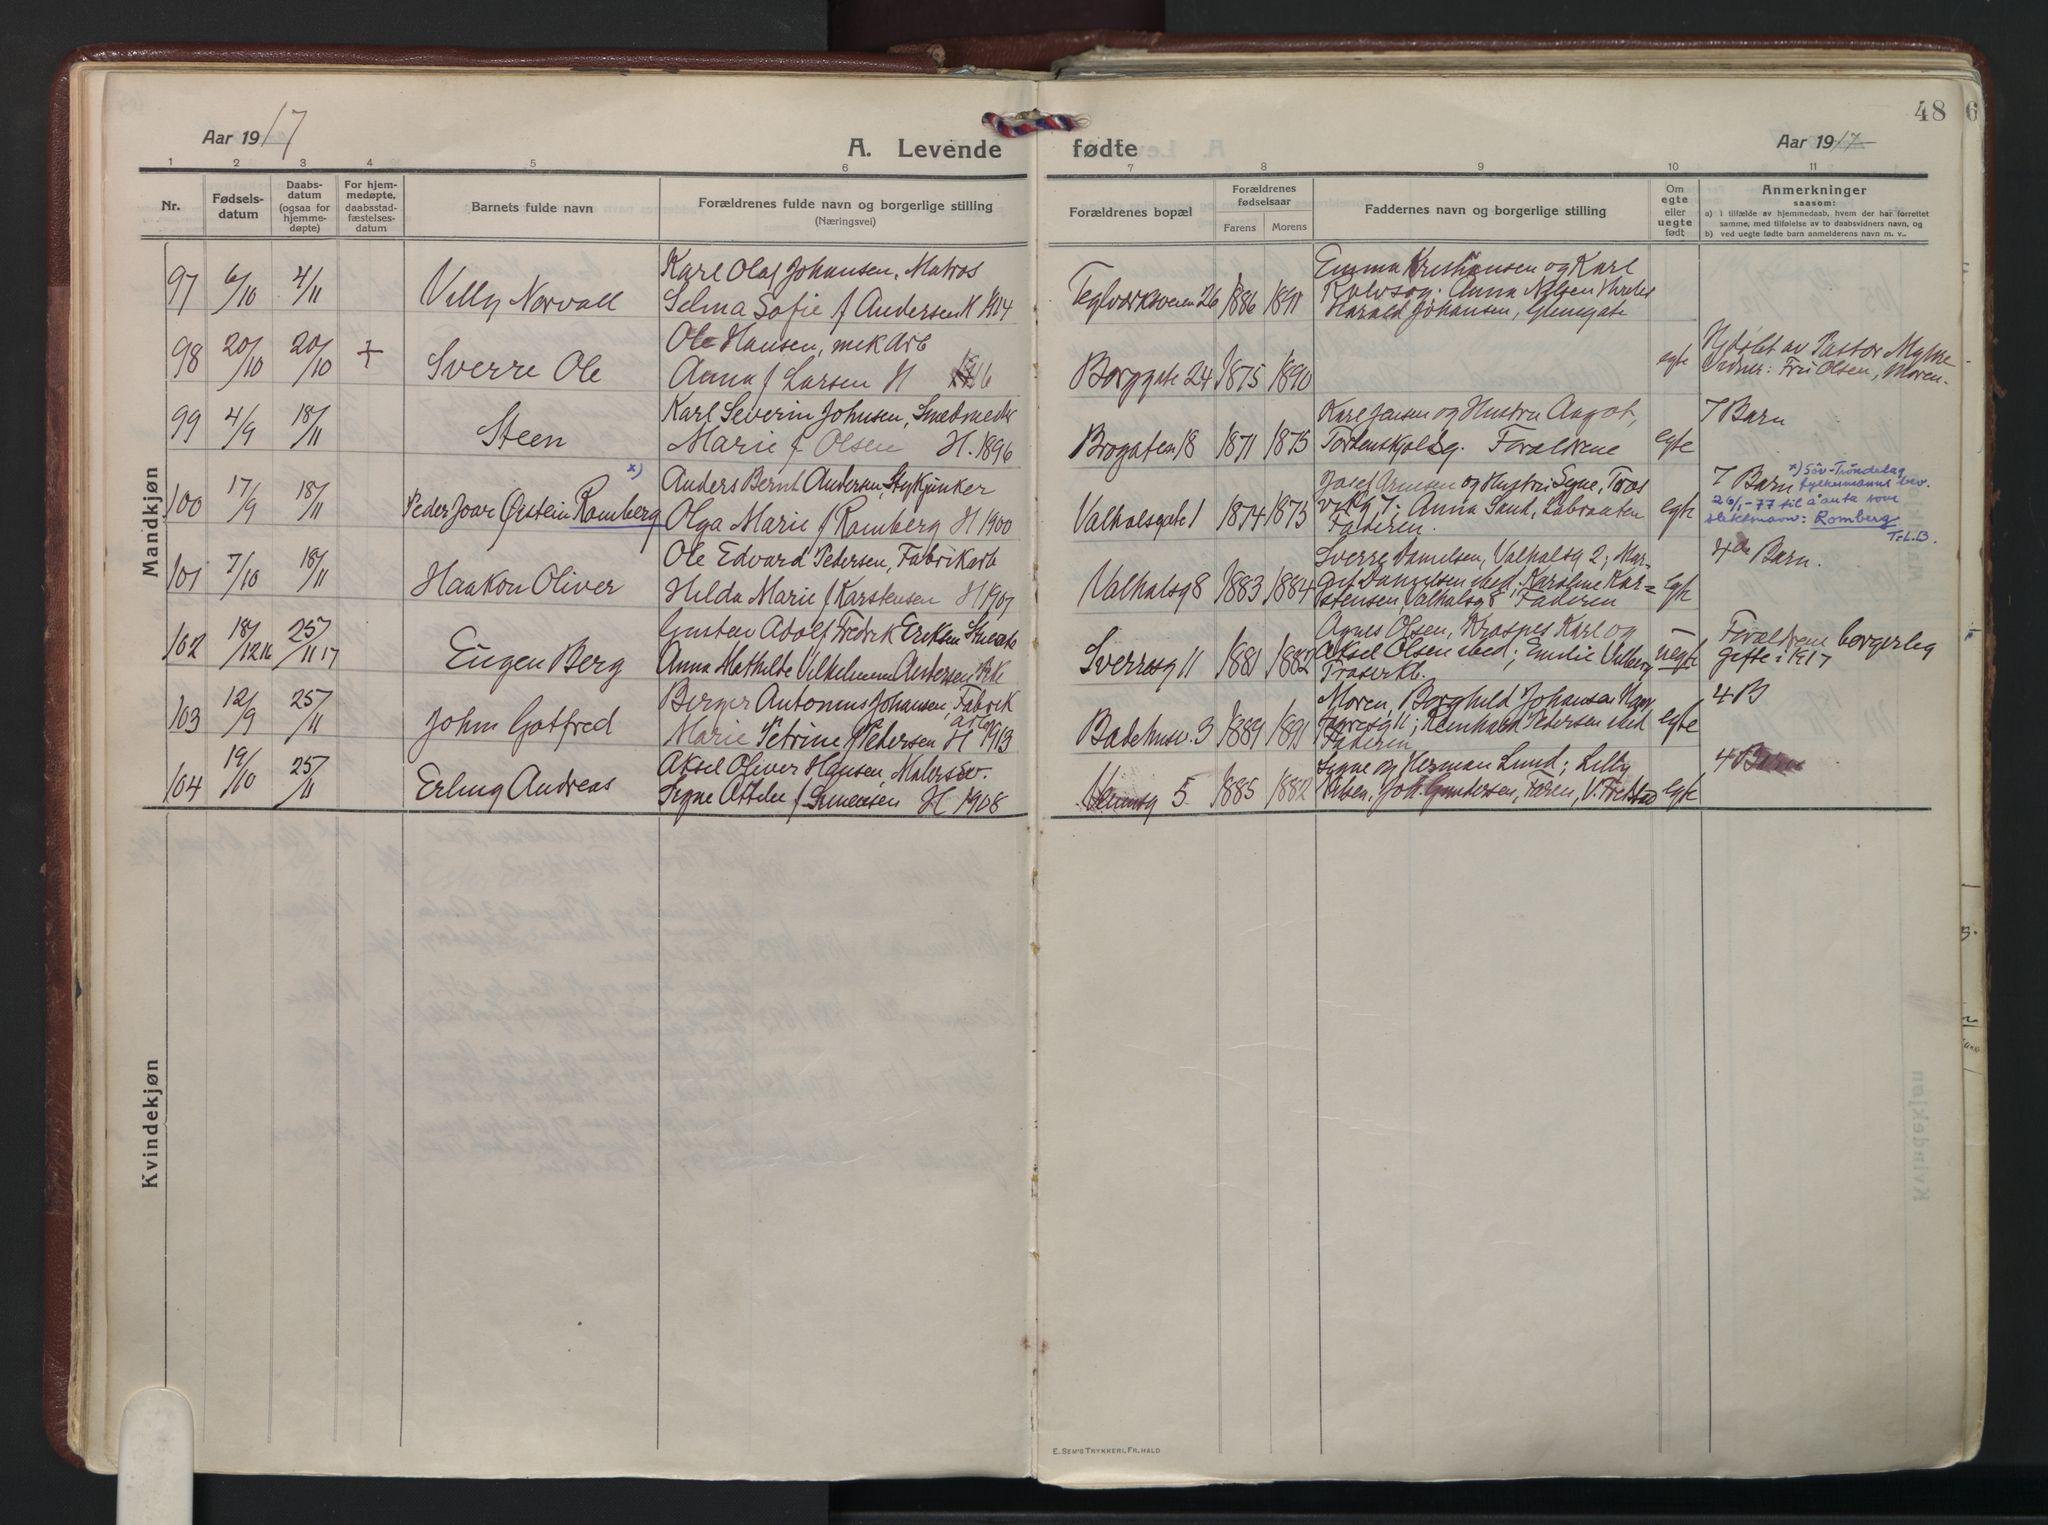 48
6
Aar 1917
A. Levende fødte
Aar 1917
1 2 3 4 5 6 7 8 9 10 11
Nr.
Fødsels-
datum
Daabs-
datum
(ogsaa for
hjemme-
døpte)
For hjem-
medøpte,
daabsstad-
fæstelses-
datum
Barnets fulde navn
Forældrenes fulde navn og borgerlige stilling
(Næringsvei)
Forældrenes bopæl
Forældrenes
fødselsaar
Farens Morens
Faddernes navn og borgerlige stilling
Om
egte
eller
uegte
født
Anmerkninger
saasom:
a) i tilfælde av hjemmedaab, hvem der har forrettet
samme, med tilføielse av to daabsvidners navn, og
b) ved uegte fødte barn anmelderens navn m. v..
Mandkjøn
97 6/10 4/11 Villy Norvall
Karl Olaf Johansen, Matros
Selma Sofie f Andersen 1914
Teglværksveien 26 1886 1891
Emma Kristiansen og Karl
Anna Nilsen
Harald Johansen, Glemgate
98 20/10 20/10 + Sverre Ole
Ole Hansen, mek Arb
Anna f Larsen H 16
Borggate 24 1875 1890 egte
Hjdøbt av Pastor
Vidner: Fru Olsen, Moren.
99 4/9 18/11 Steen
Karl Severin Johnsen,
Marie f Olsen H. 1896
Brogaten 18 1871 1875
Karl Jensen og Hustru Aagot,
Tordenskjolsg. Forældrene
egte
7 Barn
100 17/9 18/11 Peder Joar Ørstein Ramberg x)
Anders Bernt Andersen, Stykjunker
Olga Marie f Ramberg H 1900
Valhalsgate 1 1874 1875
og Hustru Signe,
7; Anna Sand,
Faderen.
egte
7 Barn
x) Sör-Tröndelag
fylkesmanns bev.
26/1-77 til å anta som
slektsnavn: Romberg
T.L.B.
101 7/10 18/11 Haakon Oliver
Ole Edvard Pedersen, Fabrikarb
Hilda Marie f Karstensen H 1907
Valhalsg 8 1883 1884
Sverre Danielsen, Valhalsg 2; Mar-
Danielsen sted, Karoline Kar=
stensen, Valhalsg 8 Faderen
egte
4de Barn.
102 18/12 16 25/11 17 Eugen Berg
Gustav Adolf Fredrik Eriksen
Anna Mathilde Vilhelmine Andersen
Sverresg 11 1881 1882
Agnes Olsen, Karl og
Aksel Olsen sted; Emilie
uegte
Forældrene borgerleg
gifte i 1917
103 12/9 25/11 John Gotfred
Berger Antonius Johansen, Fabrik
arb
Marie Petrine f Pedersen H 1913
Badehusv. 3 1889 1891
Moren, Borghild Johansen
11; Reinhard Pedersen sted
Faderen
egte
4 B
104 19/10 25/11 Erling Andreas
Aksel Oliver Hansen, Malersv.
Signe f H 1908
5 1885 1882
Signe og Herman Lund; Lilly
Nilsen, Joh. Gundersen, Faren,
egte
4 Barn
Kvindekjøn
E. SEM'S TRYKKERI, FR.HALD